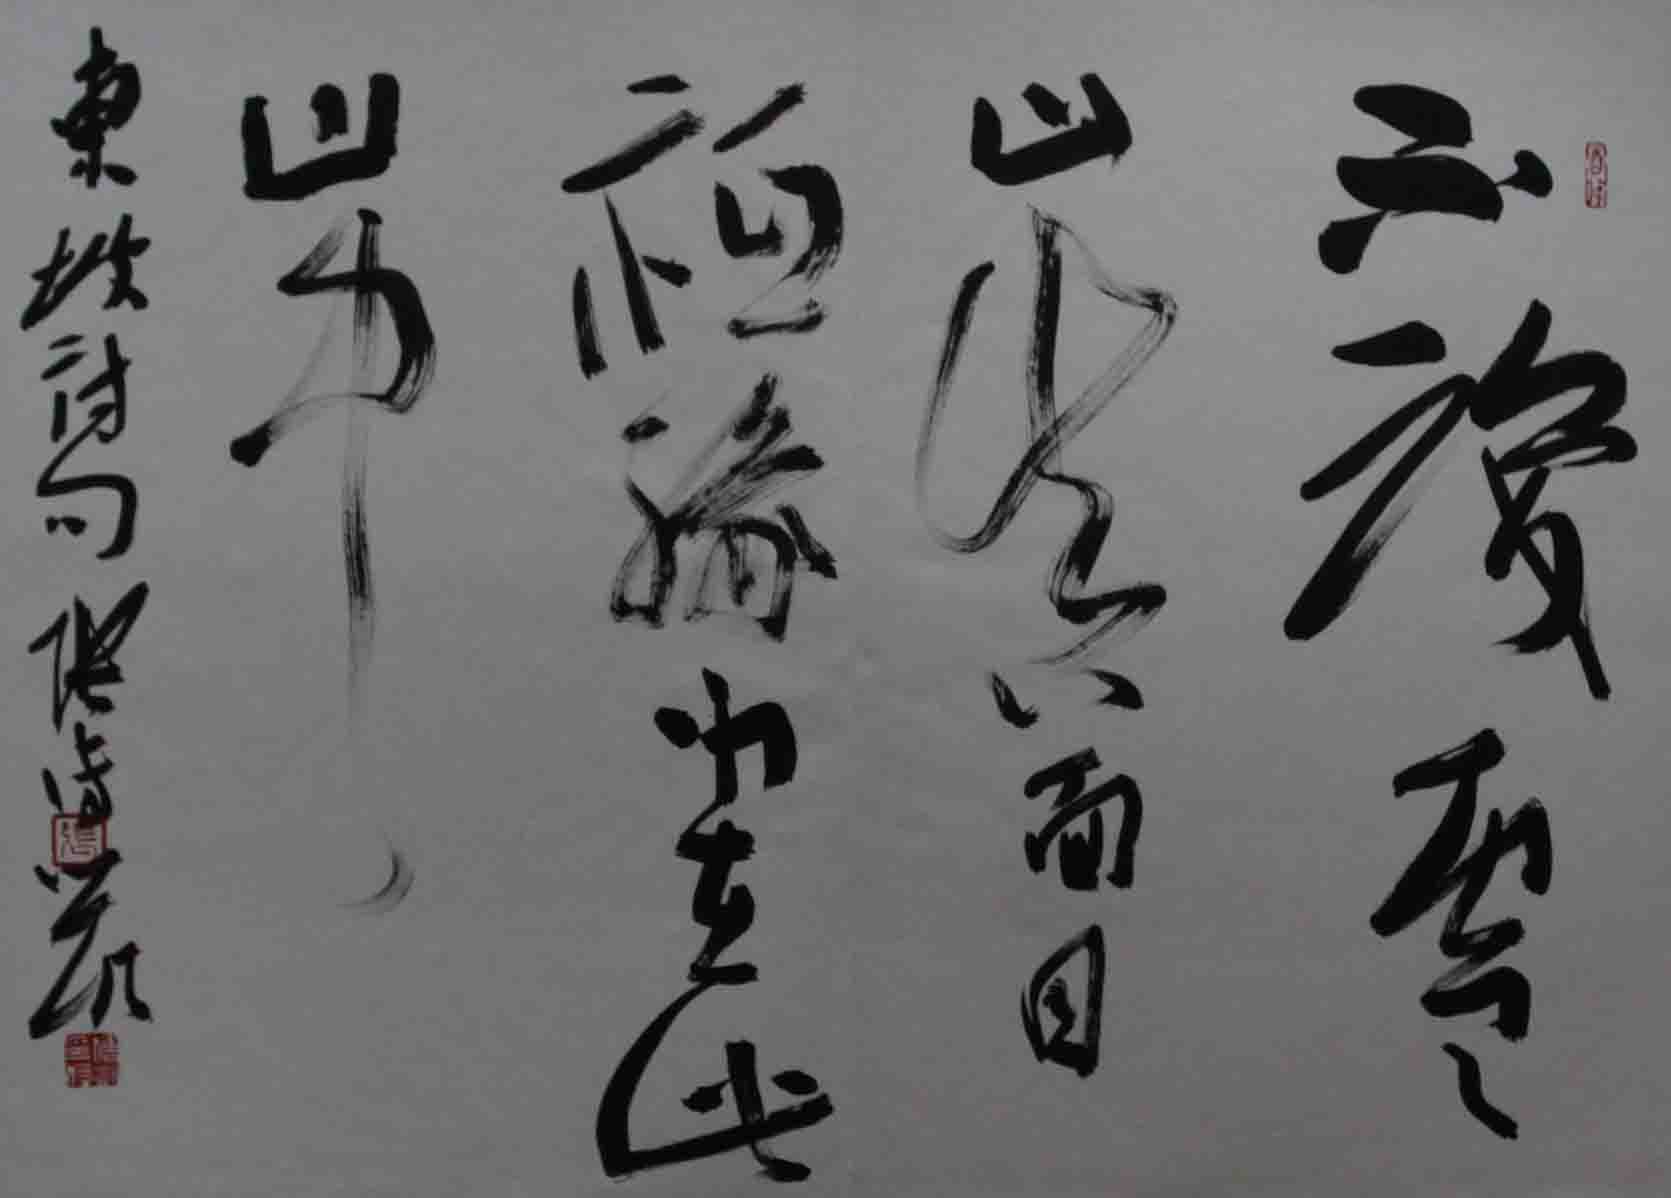 不識廬
山真面目
緣身在此
山中
東坡詩句